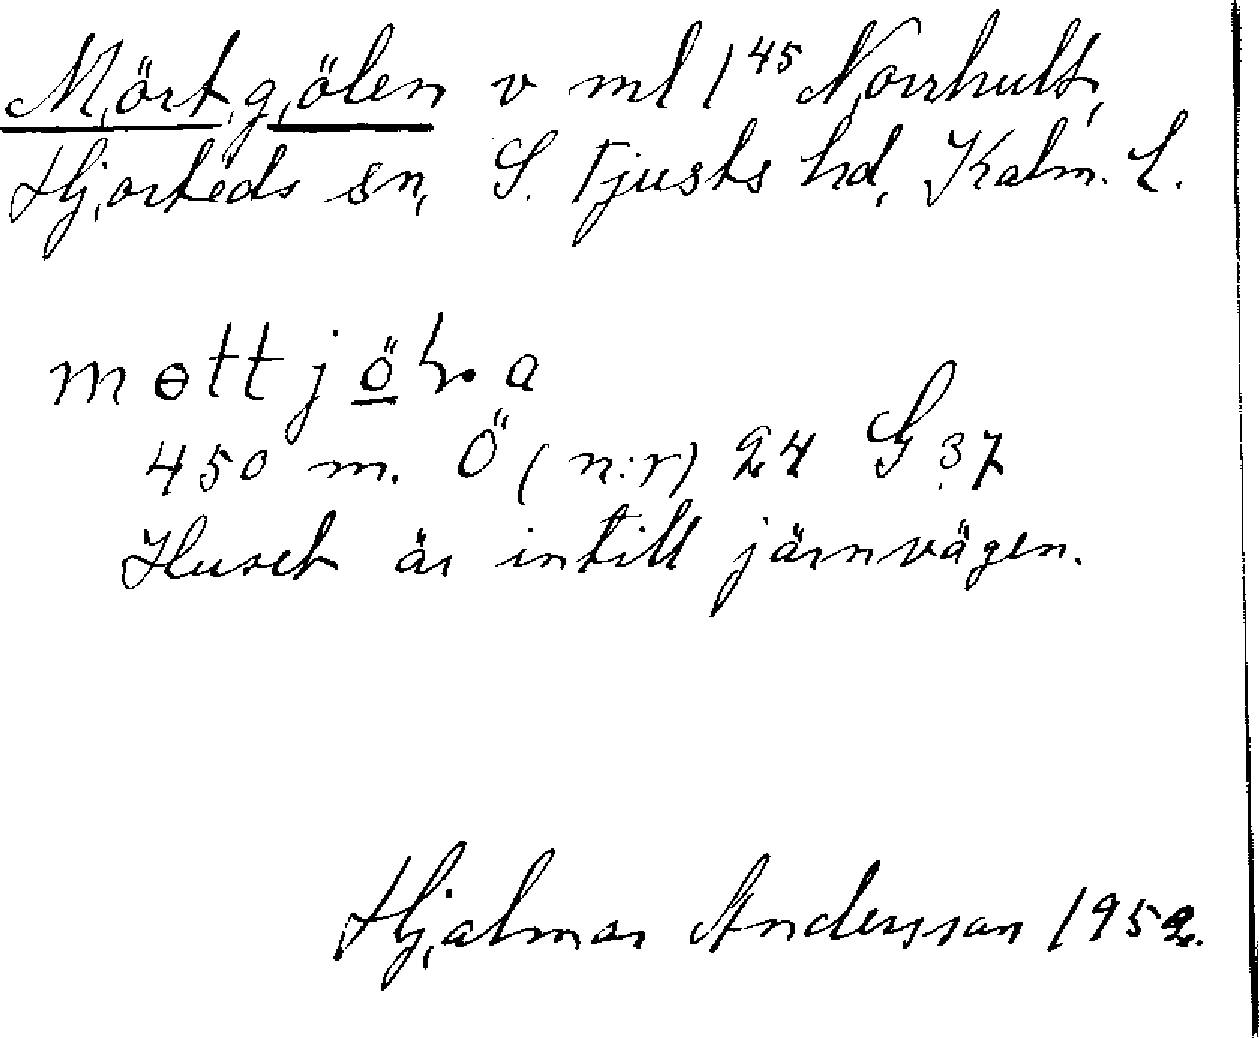 Mörtgölen v ml 1⁴⁵ Norrhult,
Hjorteds sn, S. Tjusts hd, Kalm. L.
mɵttjöꞎa
450 m. Ö (n:r) 24 G 37
Huset är intill järnvägen.
Hjalmar Andersson 1952.